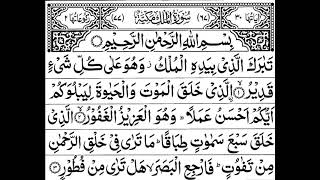 اٰيَاتُهَا ٣٠ (٦٧) سُوْرَةُ الْمُلْكِ مَكِّيَّةٌ (٧٧) رُكُوْعَاتُهَا ٢
بِسْمِ اللهِ الرَّحْمٰنِ الرَّحِيْمِ
تَبٰرَكَ الَّذِيْ بِيَدِهِ الْمُلْكُ وَهُوَ عَلٰى كُلِّ شَيْءٍ
قَدِيْرُ ۙ۝١ الَّذِيْ خَلَقَ الْمَوْتَ وَالْحَيٰوةَ لِيَبْلُوَكُمْ
اَيُّكُمْ اَحْسَنُ عَمَلًا ؕ وَهُوَ الْعَزِيْزُ الْغَفُوْرُ ۙ۝٢ الَّذِيْ
خَلَقَ سَبْعَ سَمٰوٰتٍ طِبَاقًا ؕ مَا تَرٰى فِيْ خَلْقِ الرَّحْمٰنِ
مِنْ تَفٰوُتٍ ؕ فَارْجِعِ الْبَصَرَ ۙ هَلْ تَرٰى مِنْ فُطُوْرٍ ۝٣